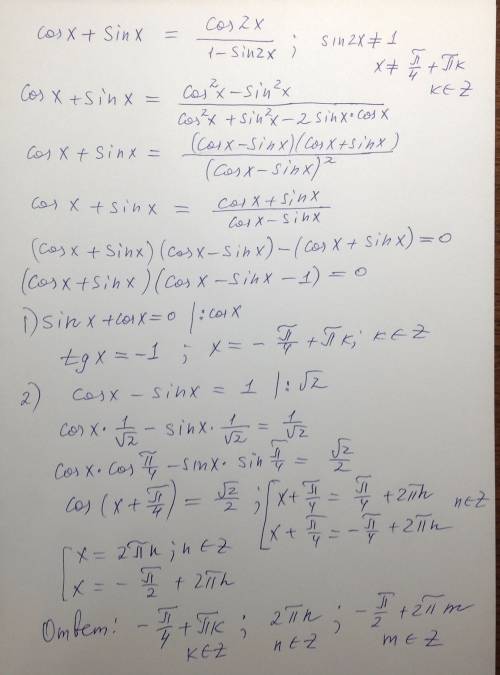 cosx + sinx = cos2x / (1 - sin2x) ; sin2x ≠ 1
x ≠ π/4 + πk
k∈Z
cosx + sinx = (cos²x - sin²x) / (cos²x + sin²x - 2 sinx·cosx)
cosx + sinx = (cosx - sinx)(cosx + sinx) / (cosx - sinx)²
cosx + sinx = (cosx + sinx) / (cosx - sinx)
(cosx + sinx)(cosx - sinx) - (cosx + sinx) = 0
(cosx + sinx)(cosx - sinx - 1) = 0
1) sinx + cosx = 0 |:cosx
tgx = -1 ; x = -π/4 + πk; k∈Z
2) cosx - sinx = 1 |:√2
cosx · 1/√2 - sinx · 1/√2 = 1/√2
cosx · cos π/4 - sinx · sin π/4 = √2/2
cos(x + π/4) = √2/2 ; [ x + π/4 = π/4 + 2πn n∈Z
x + π/4 = -π/4 + 2πn
[ x = 2πn ; n∈Z
x = -π/2 + 2πn
Ответ: -π/4 + πk ; 2πn ; -π/2 + 2πm
k∈Z n∈Z m∈Z